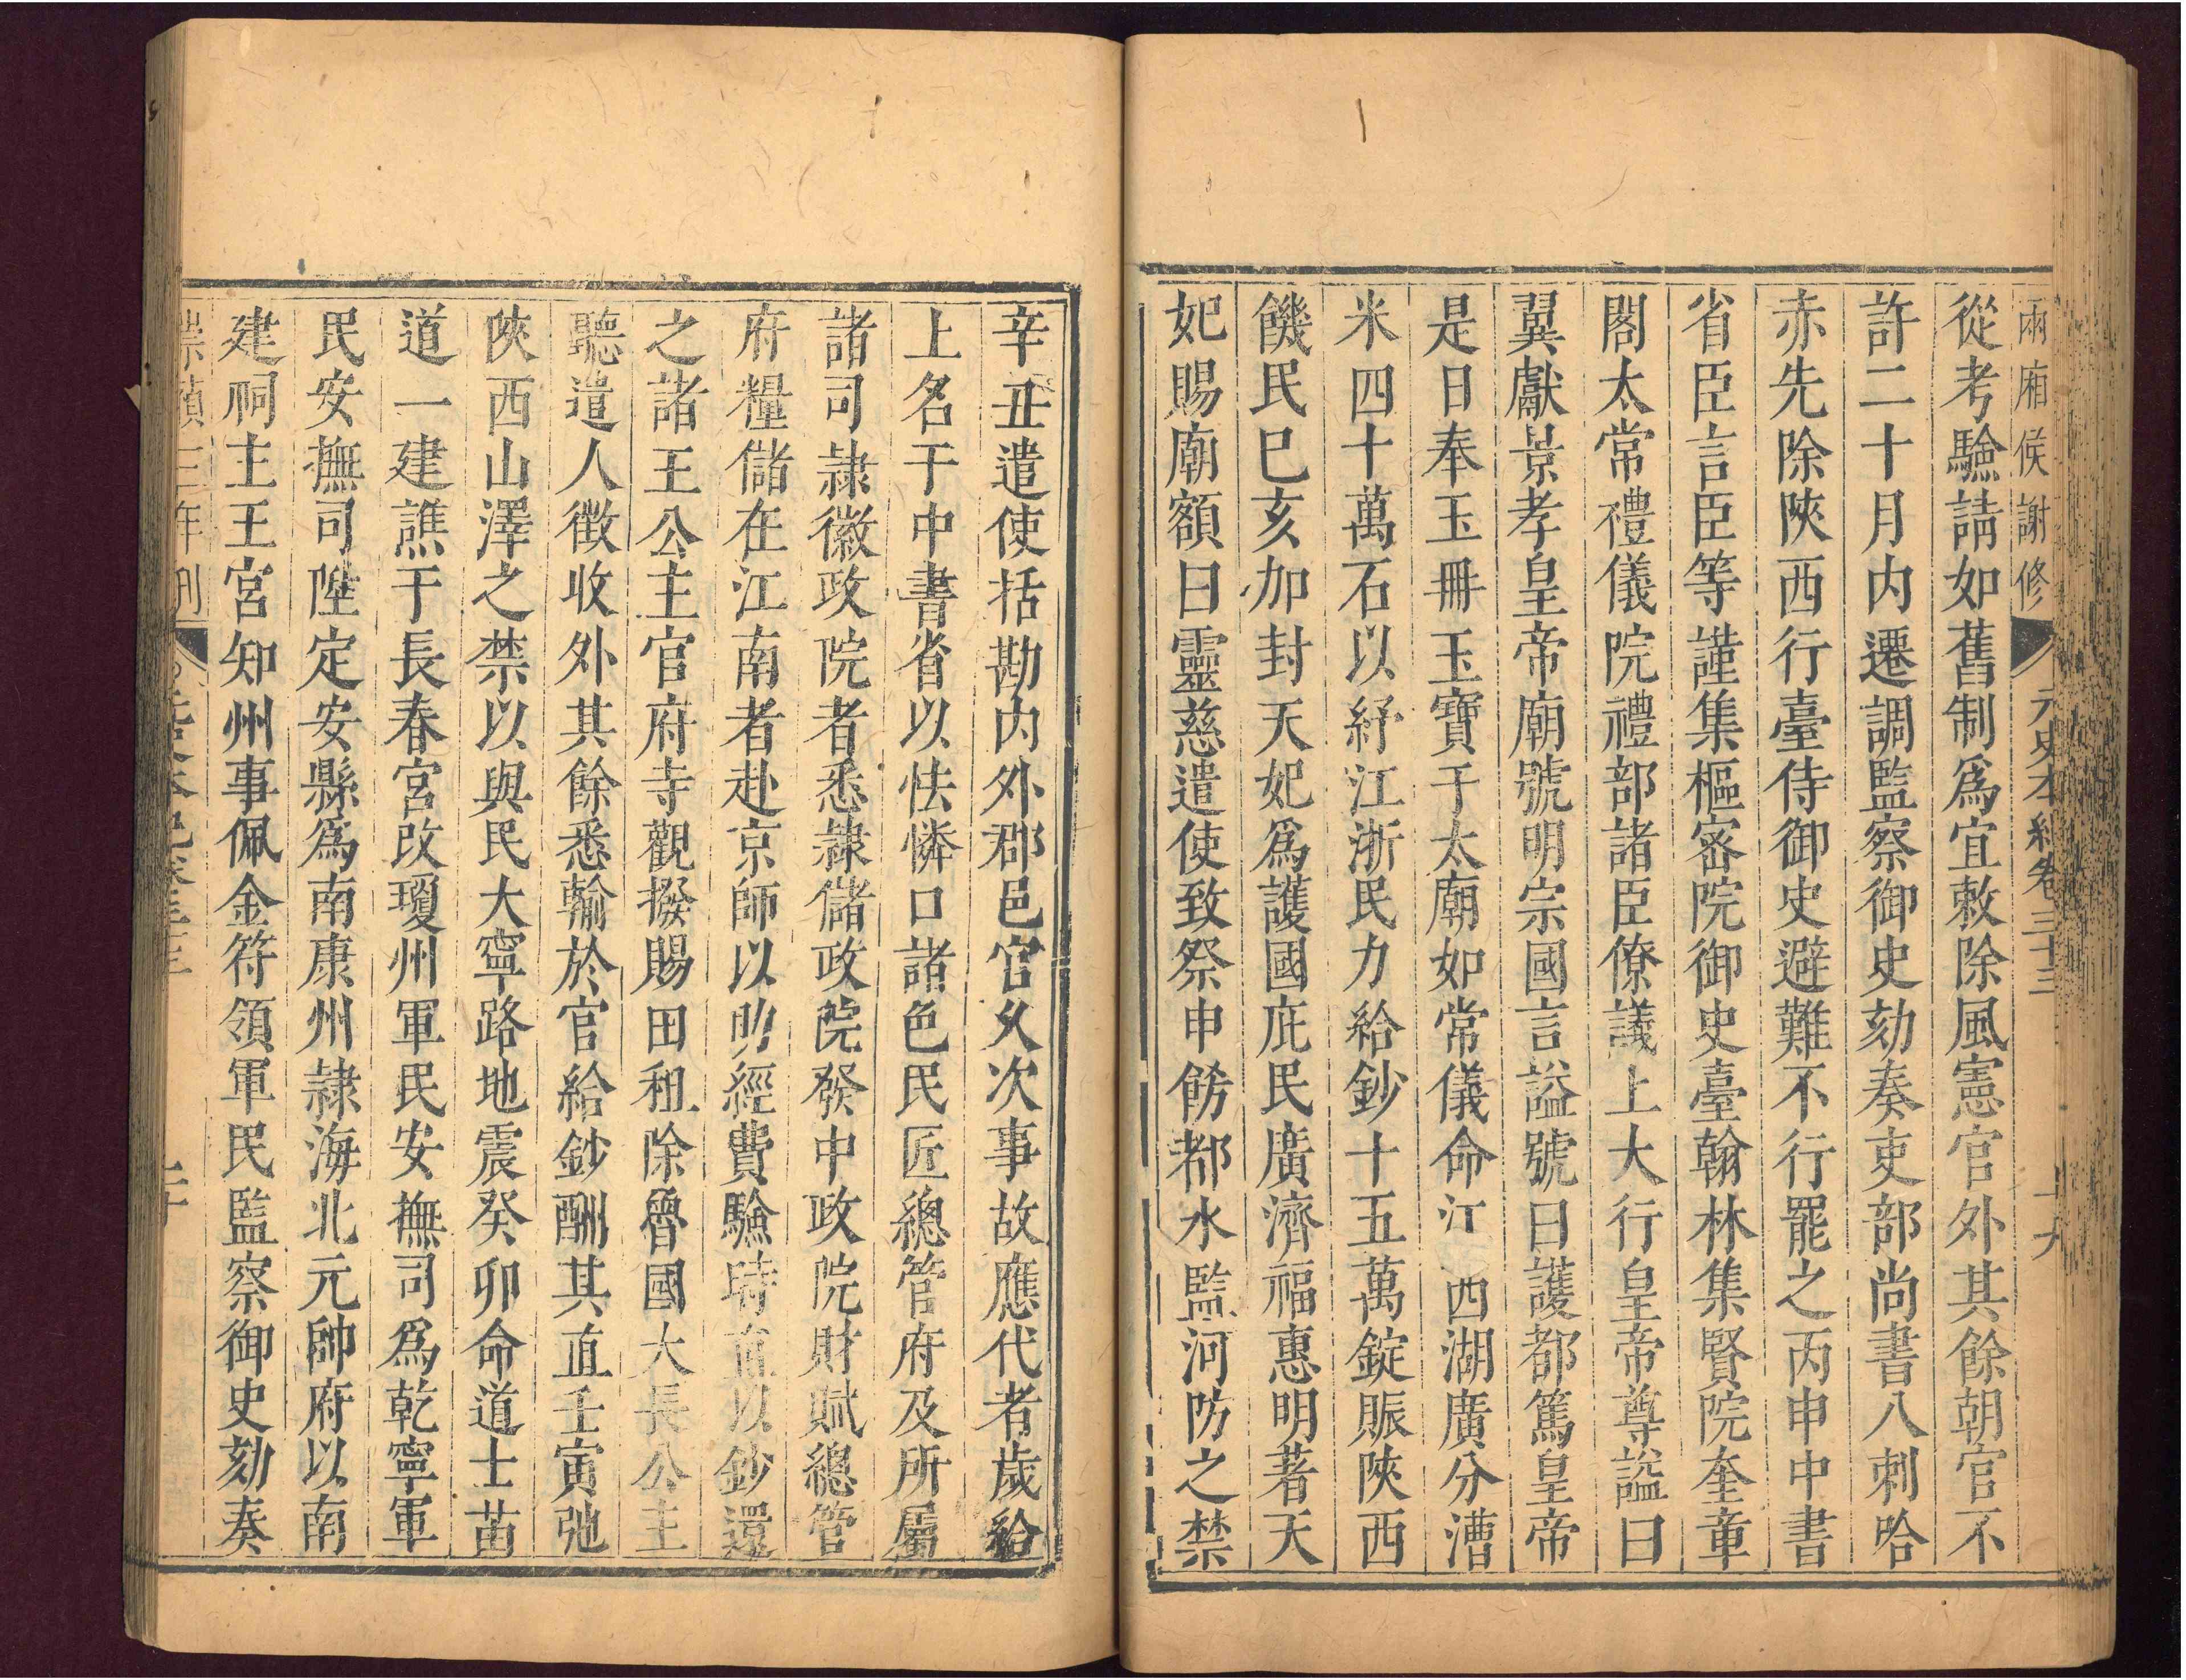 兩廂侯謝修 元史本紀卷三十三 十九
從考驗請如舊制爲宜敕除風憲官外其餘朝官不
許二十月內遷調監察御史劾奏吏部尚書八剌哈
赤先除陝西行臺侍御史避難不行罷之丙申中書
省臣言臣等謹集樞密院御史臺翰林集賢院奎章
閣太常禮儀院禮部諸臣僚議上大行皇帝尊謚曰
翼獻景孝皇帝廟號明宗國言謚號曰護都篤皇帝
是日奉玉冊玉寶于太廟如常儀命江西湖廣分漕
米四十萬石以紓江浙民力給鈔十五萬錠賑陝西
饑民巳亥加封天妃爲護國庇民廣濟福惠明著天
妃賜廟額曰靈慈遣使致祭申飭都水監河防之禁
辛丑遣使括勘內外郡邑官久次事故應代者歲給
上名于中書省以怯憐口諸色民匠總管府及所屬
諸司隷徽政院者悉隷儲政院發中政院財賦總管
府糧儲在江南者赴京師以助經費驗時直以鈔還
之諸王公主官府寺觀撥賜田租除魯國大長公主
聽遣人徵收外其餘悉輸於官給鈔酬其直壬寅弛
陝西山澤之禁以與民大寧路地震癸卯命道士苗
道一建譙于長春宮改瓊州軍民安撫司爲乾寧軍
民安撫司陞定安縣爲南康州隷海北元帥府以南
建祠主王宮知州事佩金符領軍民監察御史劾奏
崇禎三年刊 元史本紀卷三十三 二十